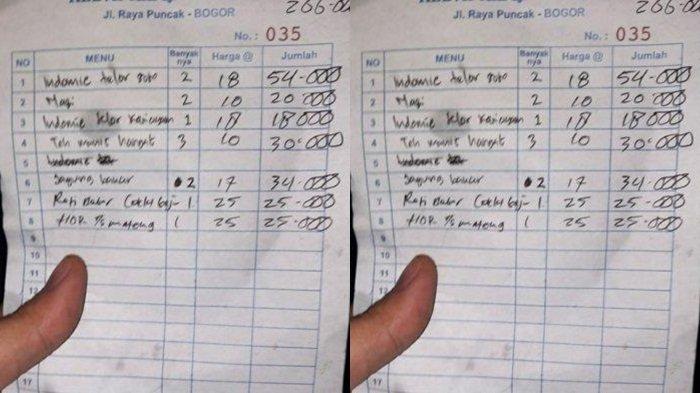 206-000
Jl. Raya Puncak - BOGOR
No.: 035
NO MENU Banyak nya Harga @ Jumlah
1 Indomie telor soto 2 18 54-000
2 Magi 2 10 20 000
3 Indomie telor 1 18 18000
4 Teh manis hangat 3 10 30-000
5 Indomie
6 Jagung bakar 2 17 34-000
7 Roti Bakar Coklat keju 1 25 25-000
8 telor 1/2 mateng 1 25 25-000
9
10
11
12
17
206-000
Jl. Raya Puncak - BOGOR
No.: 035
NO MENU Banyak nya Harga @ Jumlah
1 Indomie telor soto 2 18 54-000
2 Magi 2 10 20 000
3 Indomie telor 1 18 18000
4 Teh manis hangat 3 10 30-000
5 Indomie
6 Jagung bakar 2 17 34-000
7 Roti Bakar Coklat keju 1 25 25-000
8 telor 1/2 mateng 1 25 25-000
9
10
11
12
17